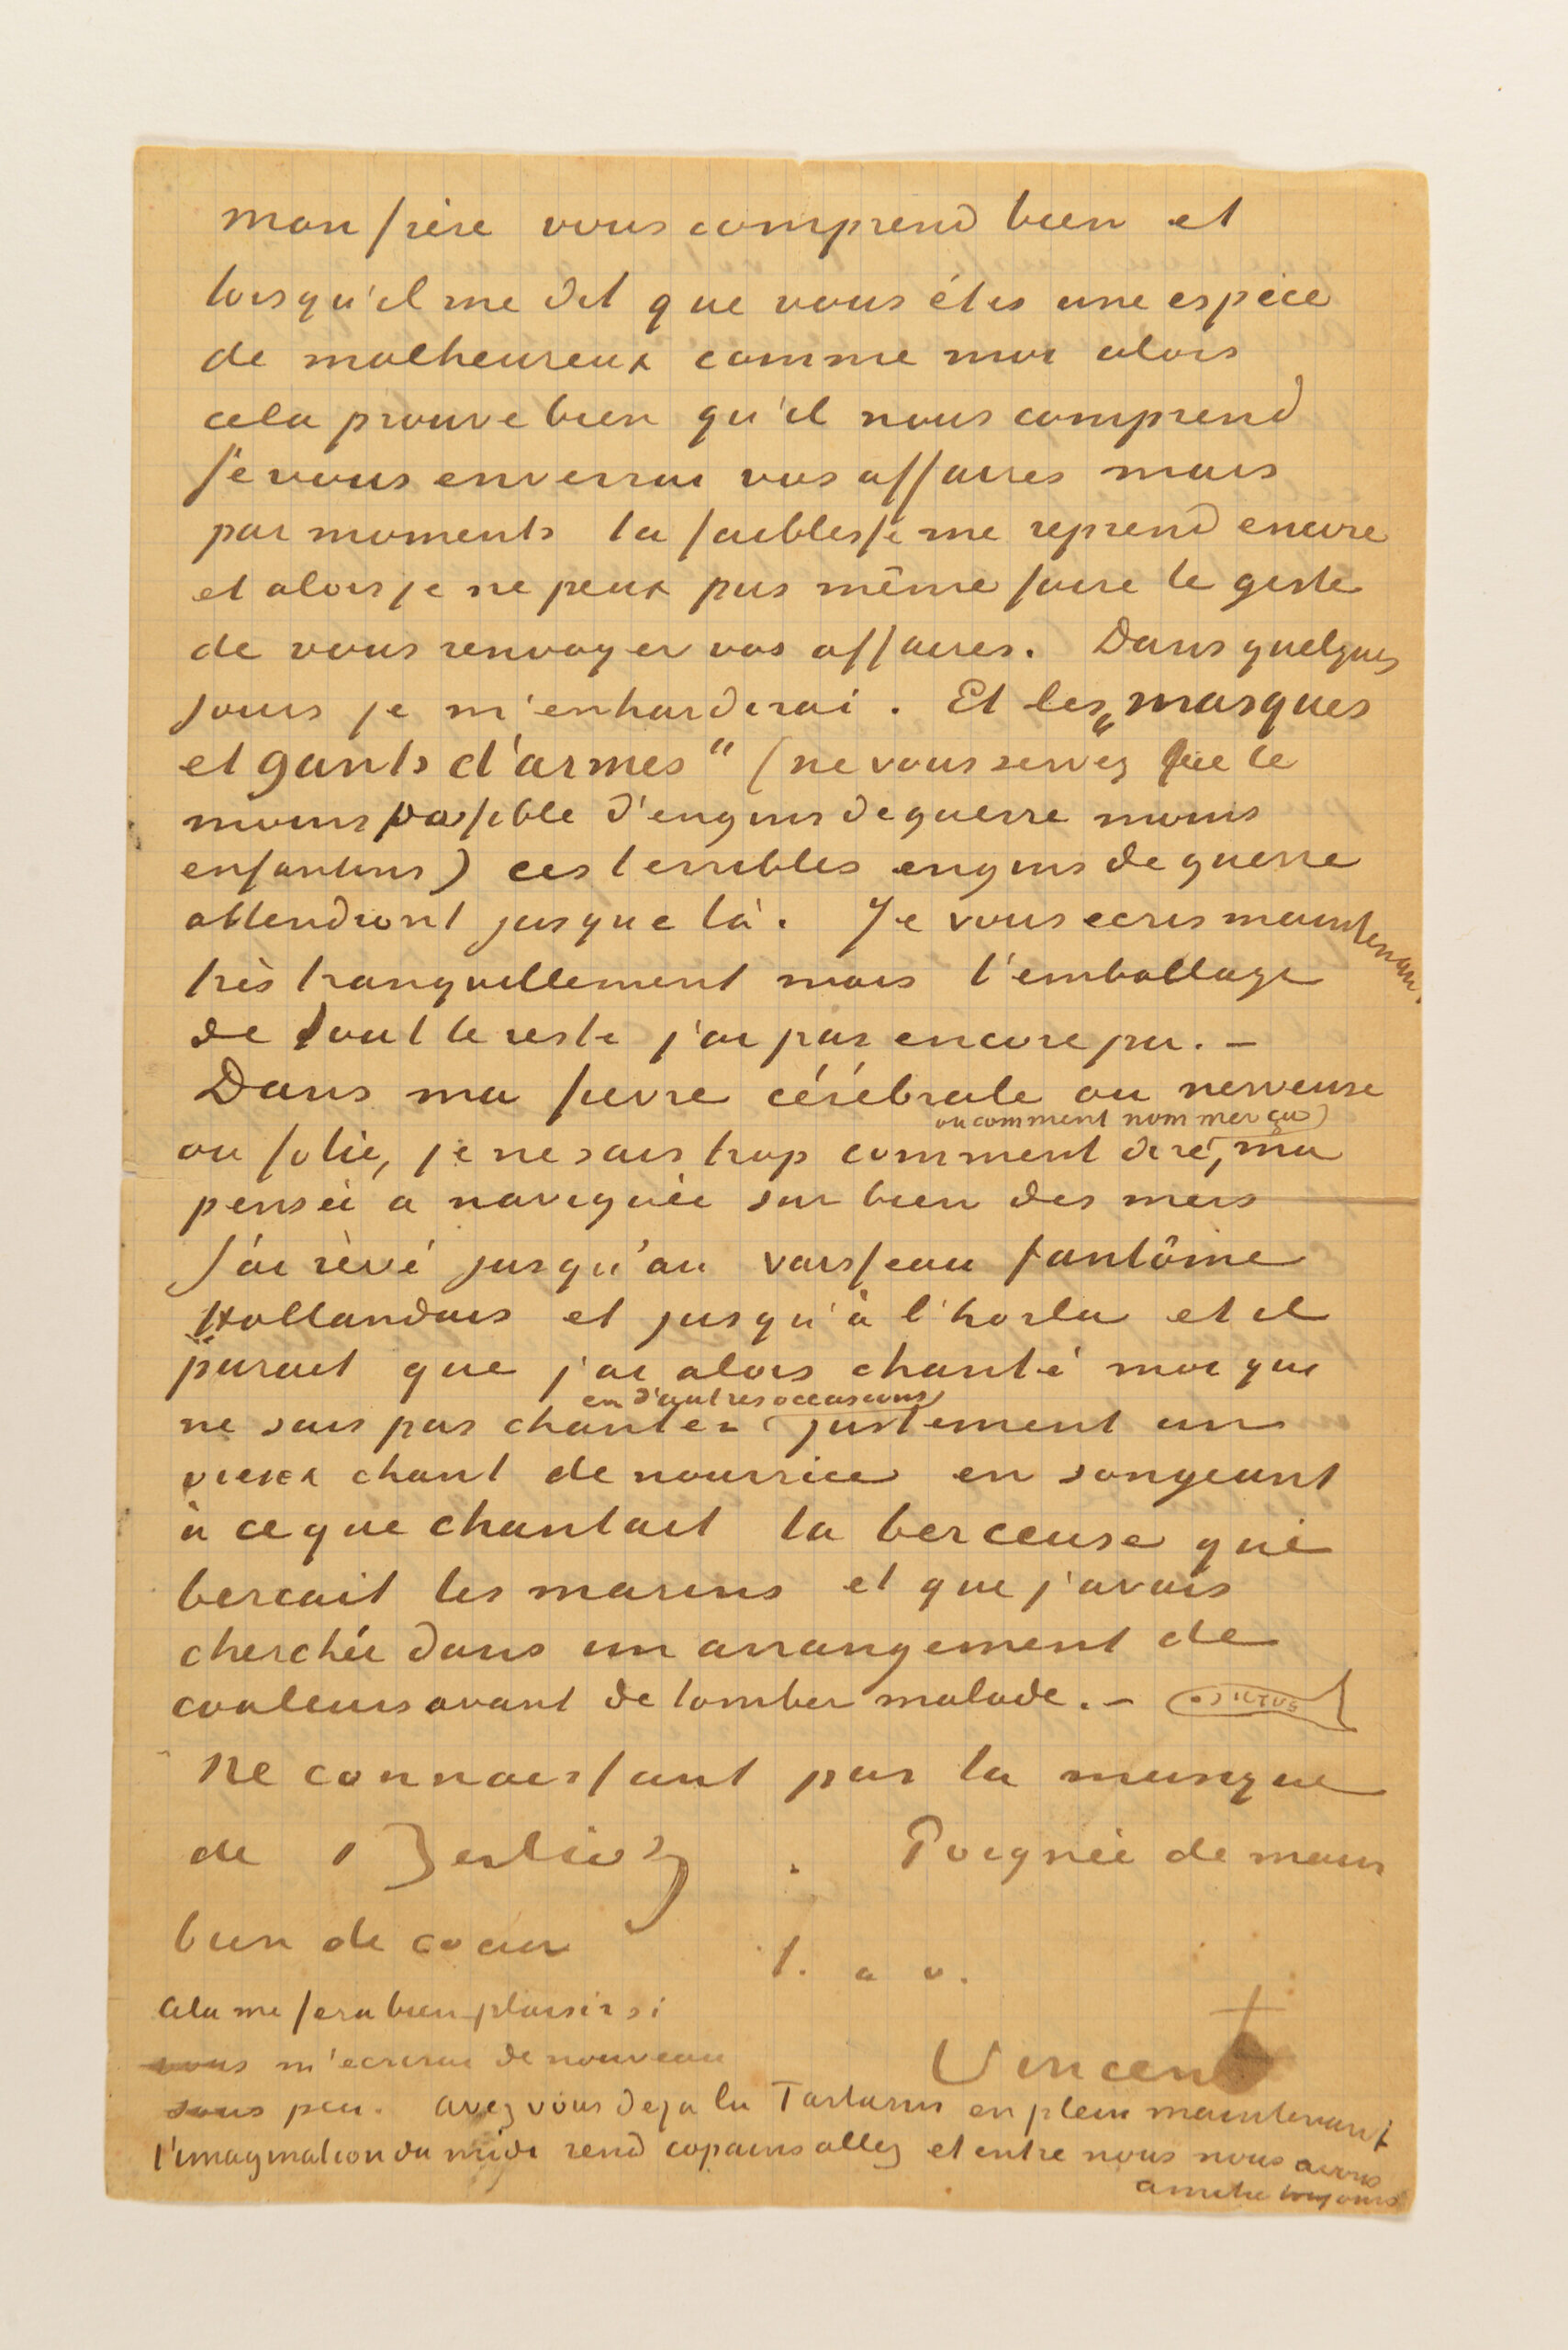 mon frère vous comprend bien et
lorsqu'il me dit que vous étes une espèce
de malheureux comme moi alors
cela prouve bien qu'il nous comprend
Je vous enverrai vos affaires mais
par moments la faiblesse me reprend encore
et alors je ne peux pas même faire le geste
de vous renvoyer vos affaires. Dans quelques
jours je m'enhardirai. Et les „masques
et gants d'armes“ (ne vous servez que le
moins possible d'engins de guerre moins
enfantins) ces terribles engins de guerre
attendront jusque là. Je vous ecris maintenant
très tranquillement mais l'emballage
de tout le reste j'ai pas encore pu. –
Dans ma fievre cérébrale ou nerveuse
ou comment nommer ça)
ou folie, je ne sais trop comment dire, ma
pensée a naviguée sur bien des mers
J'ai rêvé jusqu'au vaisseau fantôme
Hollandais et jusqu'à l'horla et il
parait que j'ai alors chanté moi qui
en d'autres occasions
ne sais pas chanter justement un
vieux chant de nourrice en songeant
à ce que chantait la berceuse qui
bercait les marins et que j'avais
cherchée dans un arrangement de
couleurs avant de tomber malade. –
Ne connaissant pas la musique
de Berlioz. Poignée de main
bien de coeur t. a v.
Cela me fera bien plaisir si
vous m'ecrirai de nouveau
Vincent
sous peu. avez vous deja lu Tartarin en plein maintenant
l'imagination du midi rend copains allez et entre nous nous avons
amitie toujours